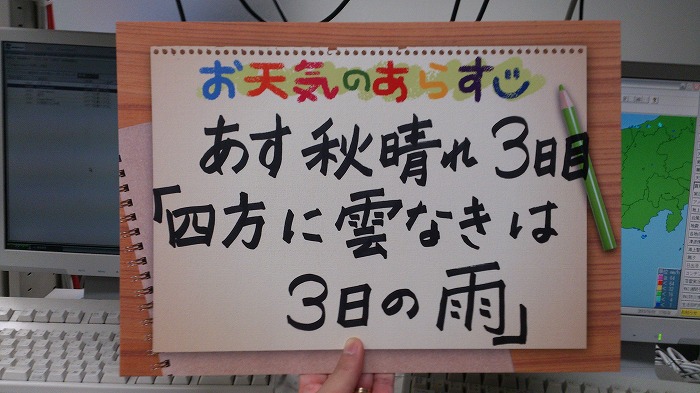 お天気のあらすじ
あす秋晴れ3日目
「四方に雲なきは
3日の雨」